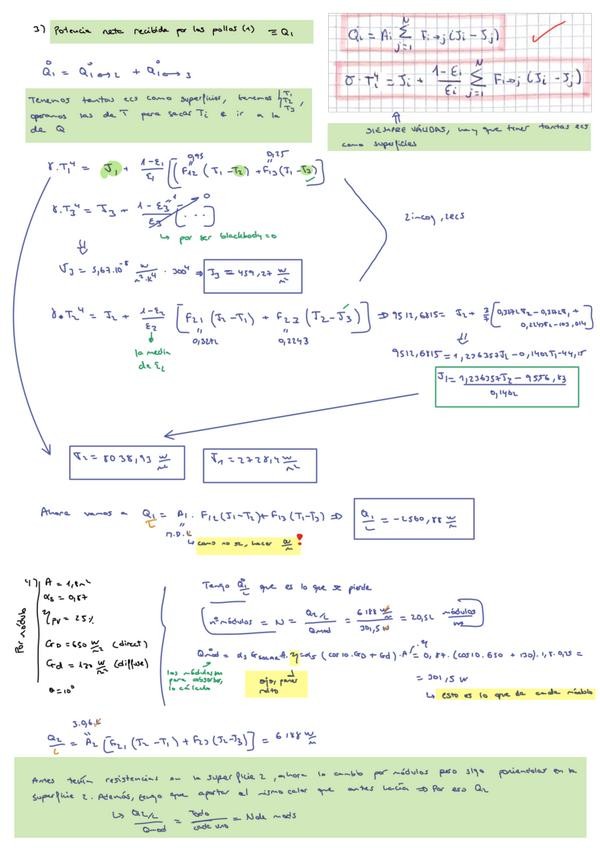 3) Potencia neta recibida por los pollos (1) ≡ Q₁
Q̇₁ = Q₁↔₂ + Q₁↔₃
Tenemos tantas ecs como superficies, tenemos T₁, T₂, T₃,
operamos las de T para sacar Tᵢ e ir a la
de Q
Qᵢ = Aᵢ Σ_{j=1}^{N} F_{i→j} (Jᵢ - Jⱼ)
σ·Tᵢ⁴ = Jᵢ + (1-εᵢ)/εᵢ Σ_{j=1}^{N} F_{i→j} (Jᵢ - Jⱼ)
SIEMPRE VÁLIDAS, hay que tener tantas ecs
como superficies
σ·T₁⁴ = J₁ + (1-ε₁)/ε₁ [F₁₂ (J₁-J₂) + F₁₃ (J₁-J₃)]
σ·T₃⁴ = J₃ + (1-ε₃)/ε₃ [...] 0
↳ por ser blackbody = 0
2 incog, 2 ecs
J₃ = 5,67·10⁻⁸ w/m²·K⁴ · 300⁴ ⇒ J₃ = 459,27 w/m²
σ·T₂⁴ = J₂ + (1-ε₂)/ε₂ [F₂₁ (J₂-J₁) + F₂₃ (J₂-J₃)] ⇒ 9512,6815 = J₂ +
0,3272 0,2243
la media
de ε₂
9512,6815 = 1,236357J₂ - 0,1402J₁ - 44,15
J₁ = (1,236357J₂ - 9556,83)/0,1402
J₂ = 8038,93 w/m²
J₁ = 2728,4 w/m²
Ahora vamos a Q₁/L = A₁ · F₁₂(J₁-J₂) + F₁₃ (J₁-J₃) ⇒ Q₁/L = -2560,88 w/m
π.D.L
↳ como no se, hacer Q/m !
4.) A = 1,8 m²
Por módulo
αs = 0,87
η pv = 25%
GD = 650 w/m² (direct)
Gd = 130 w/m² (diffuse)
θ = 10°
Tengo Q̇/L que es lo que se pierde
nº módulos = N = (Q₂/L)/Qmod = 6188 w/m / 301,5 w = 20,52 módulos/m
Qmod = αs · A · η = αs (cos10·GD + Gd) · A · η = 0,87· (cos10·650 + 130)·1,8·0,25 =
= 301,5 w
↳ esto es lo que da cada módulo
los módulos
para absorber,
lo calcula
ojo, panel
3.0,6.L
Q₂/L = A₂ [F₂₁ (J₂-J₁) + F₂₃ (J₂-J₃)] = 6188 w/m
Antes tenía resistencias en la superficie 2, ahora lo cambio por módulos pero sigo poniéndolas en la
superficie 2. Además, tengo que aportar el mismo calor que antes hacía ⇒ Por eso Q₂
↳ (Q₂/L)/Qmod = Todo/cada uno = Nº de mods